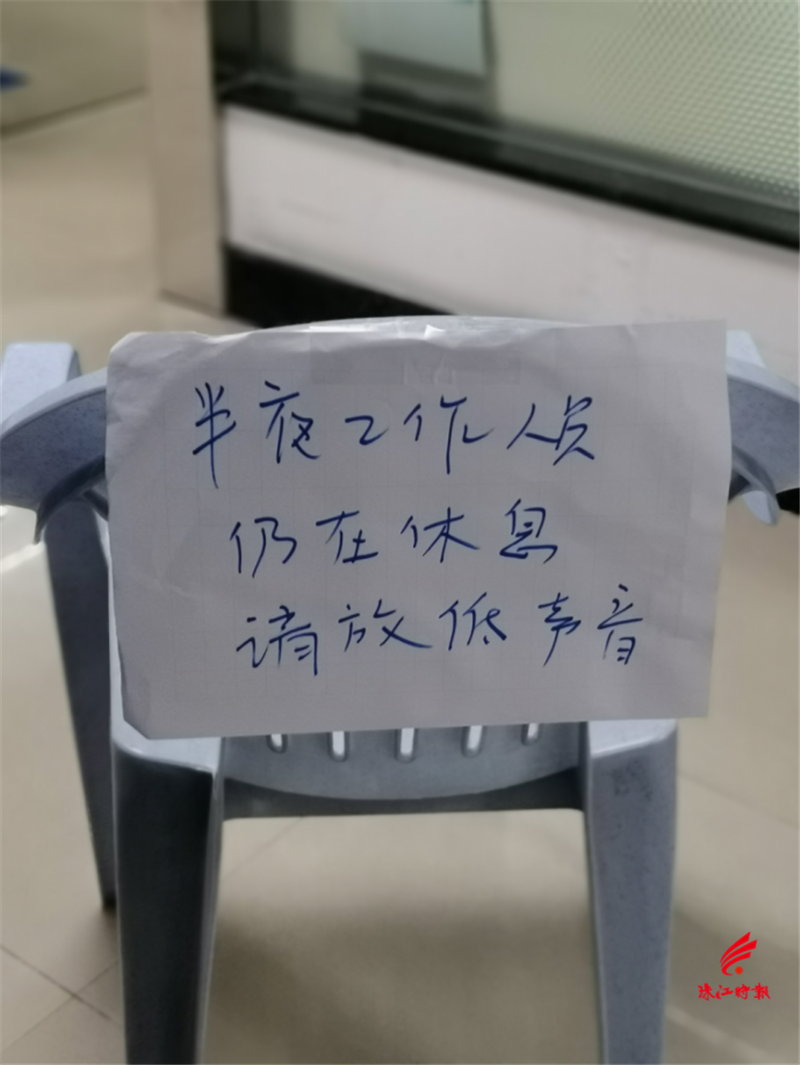 半夜工作人员
仍在休息
请放低声音
珠江时报